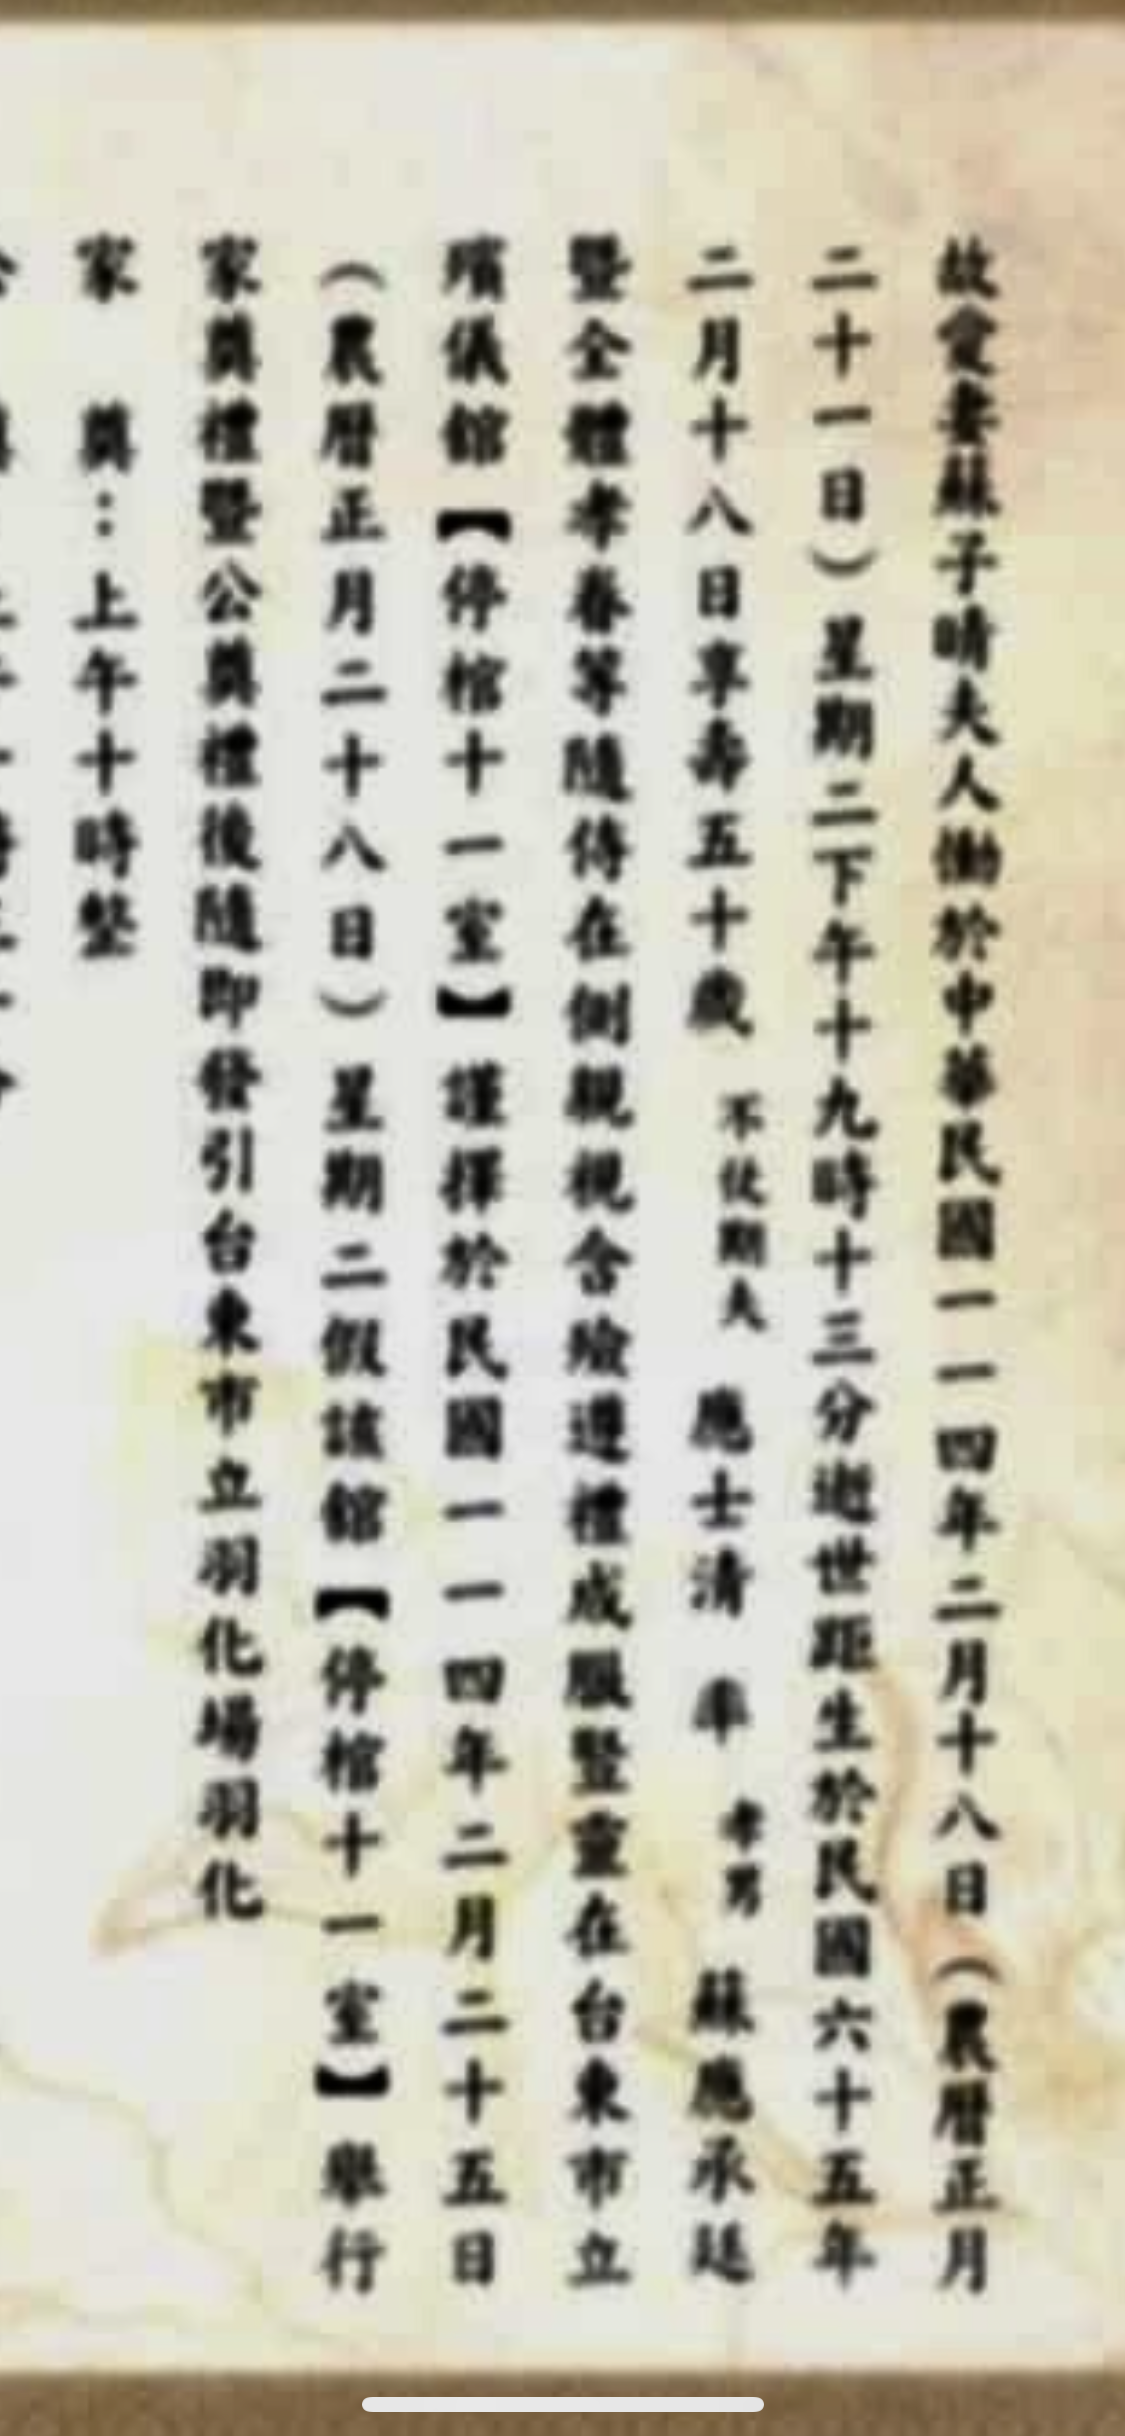 故愛妻蘇子晴夫人慟於中華民國一一四年二月十八日（農曆正月
二十一日）星期二下午十九時十三分逝世距生於民國六十五年
二月十八日享壽五十歲 不杖期夫 應士清 率 孝男 蘇應承廷
暨全體孝眷等隨侍在側親視含殮遵禮成服豎靈在台東市立
殯儀館【停棺十一室】謹擇於民國一一四年二月二十五日
（農曆正月二十八日）星期二假該館【停棺十一室】舉行
家奠禮暨公奠禮後隨即發引台東市立羽化場羽化
家 奠：上午十時整